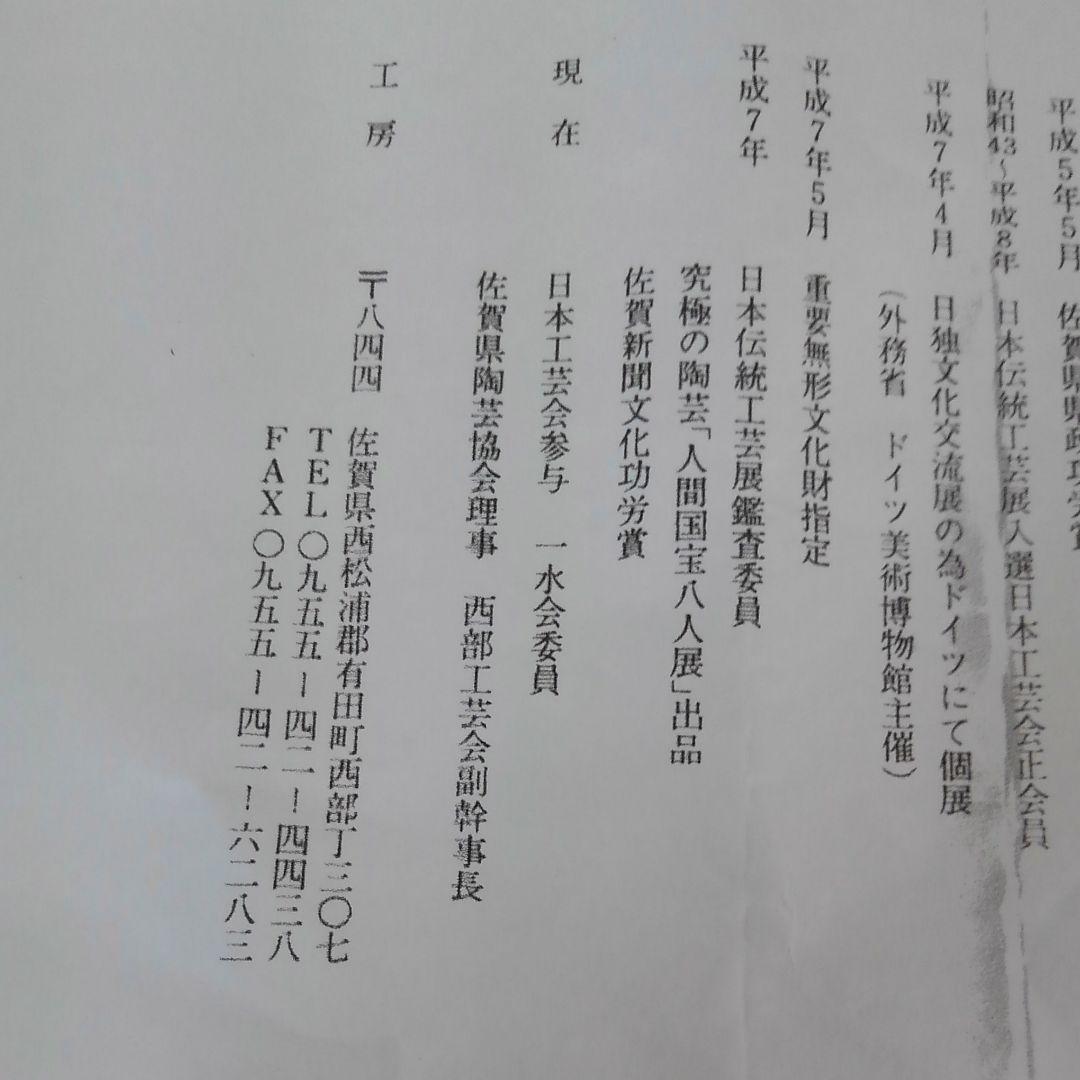 平成5年5月 佐賀県県政功労賞
昭和43～平成8年 日本伝統工芸展入選日本工芸会正会員
平成7年4月 日独文化交流展の為ドイツにて個展
（外務省 ドイツ美術博物館主催）
平成7年5月 重要無形文化財指定
平成7年 日本伝統工芸展鑑査委員
究極の陶芸「人間国宝八人展」出品
佐賀新聞文化功労賞
現在 日本工芸会参与 一水会委員
佐賀県陶芸協会理事 西部工芸会副幹事長
工房 〒八四四 佐賀県西松浦郡有田町西部丁三〇七
TEL〇九五五ー四二ー四四三八
FAX〇九五五ー四二ー六二八三